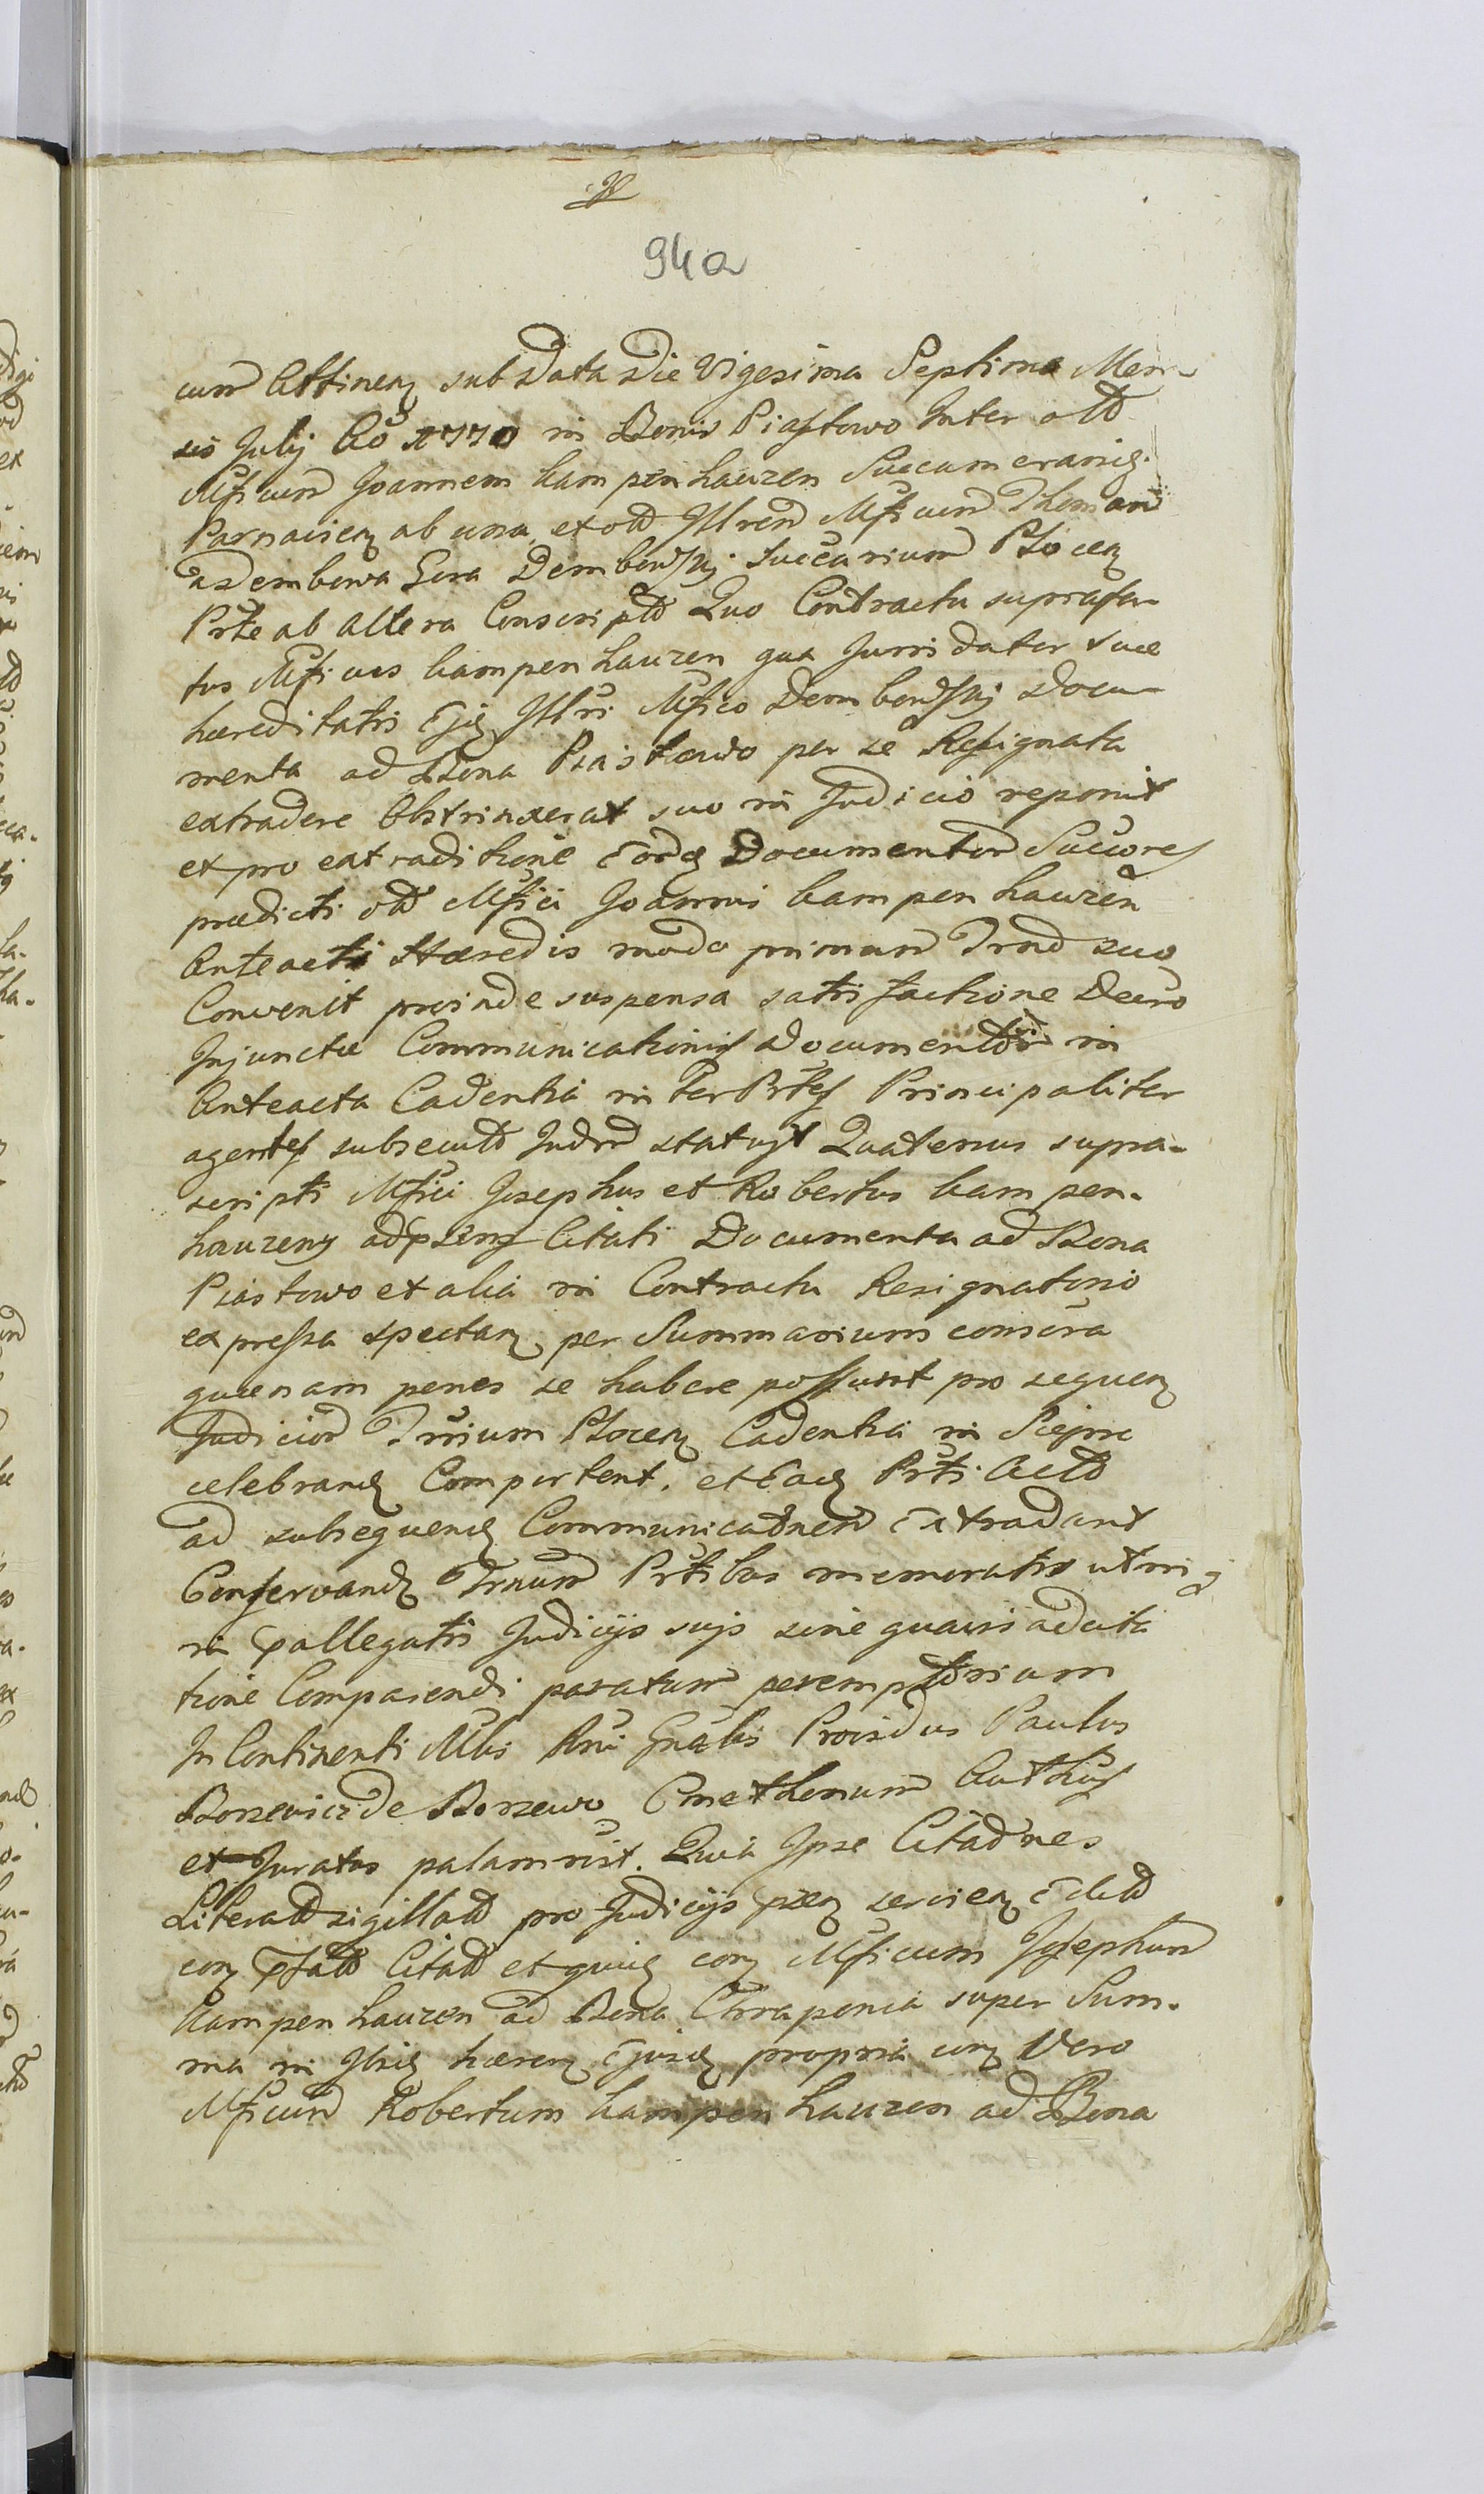 94a
cum Attinen sub Data Die Vigesima Septima Men-
sis Julij Ao 1770 in Bonis Piastowo Inter olt
Mficum Joannem Kampenhauzen Succamerarid.
Parnavien ab una, et olt Jllrem Mficum Thomam
a Dembowa Gora Dembowskj Succarium Plocen
Prte ab altera Conscripto Quo Contractu suprafa-
tus Mficus Kampenhauzen qua Jurisdator suæ
hæreditatis Ejq Jllri Mfico Dembowskj Docu-
menta ad Bona Piastowo per se Resignata
extradere Obstrinxerat suo in Judicio reponit
et pro extraditione Eord Documentor Succores
prædicti olt Mfici Joannis Kampenhauzen
Anteacti Hæredis modo primum Trno suo
Convenit proinde suspensa satisfactione Decro
Injunctæ Communicationis Documentor in
Anteacta Cadentia inter Prtes Principaliter
agentes subsecuto Judm statuit Quatenus supra-
scripti Mfici Josephus et Robertus Kampen-
hauzeny ad præns Citati Documenta ad Bona
Piastowo et alia in Contractu Resignatorio
expressa spectan per Summarium conscra
quænam penes se habere possunt pro sequen
Judicior Trrium Plocen Cadentia in Sierpc
celebrand Comportent, et Ead Prti Acto
ad subsequend Communicatnem Extradant
Conservand Trnum Prtibus memoratis utrinq
in pallegatis Judicijs sujs sine quavis adcita
tione Comparendi paratum peremptorium
In Continenti Mlis Rni Gnalis Providus Paulus
Borzevicz de Borzewo Cmethonum Authus
et Juratus palam rist. Quia Ipse Citatnes
Literatt sigillatt pro Judicijs præn servien Edett
con pfatt Citatt et quid con Mficum Josephum
Kampenhauzen ad Bona Chraponia super Sum-
ma in Jisd hæren Ejusd propria con Vero
Mficum Robertum Kampenhauzen ad Bona